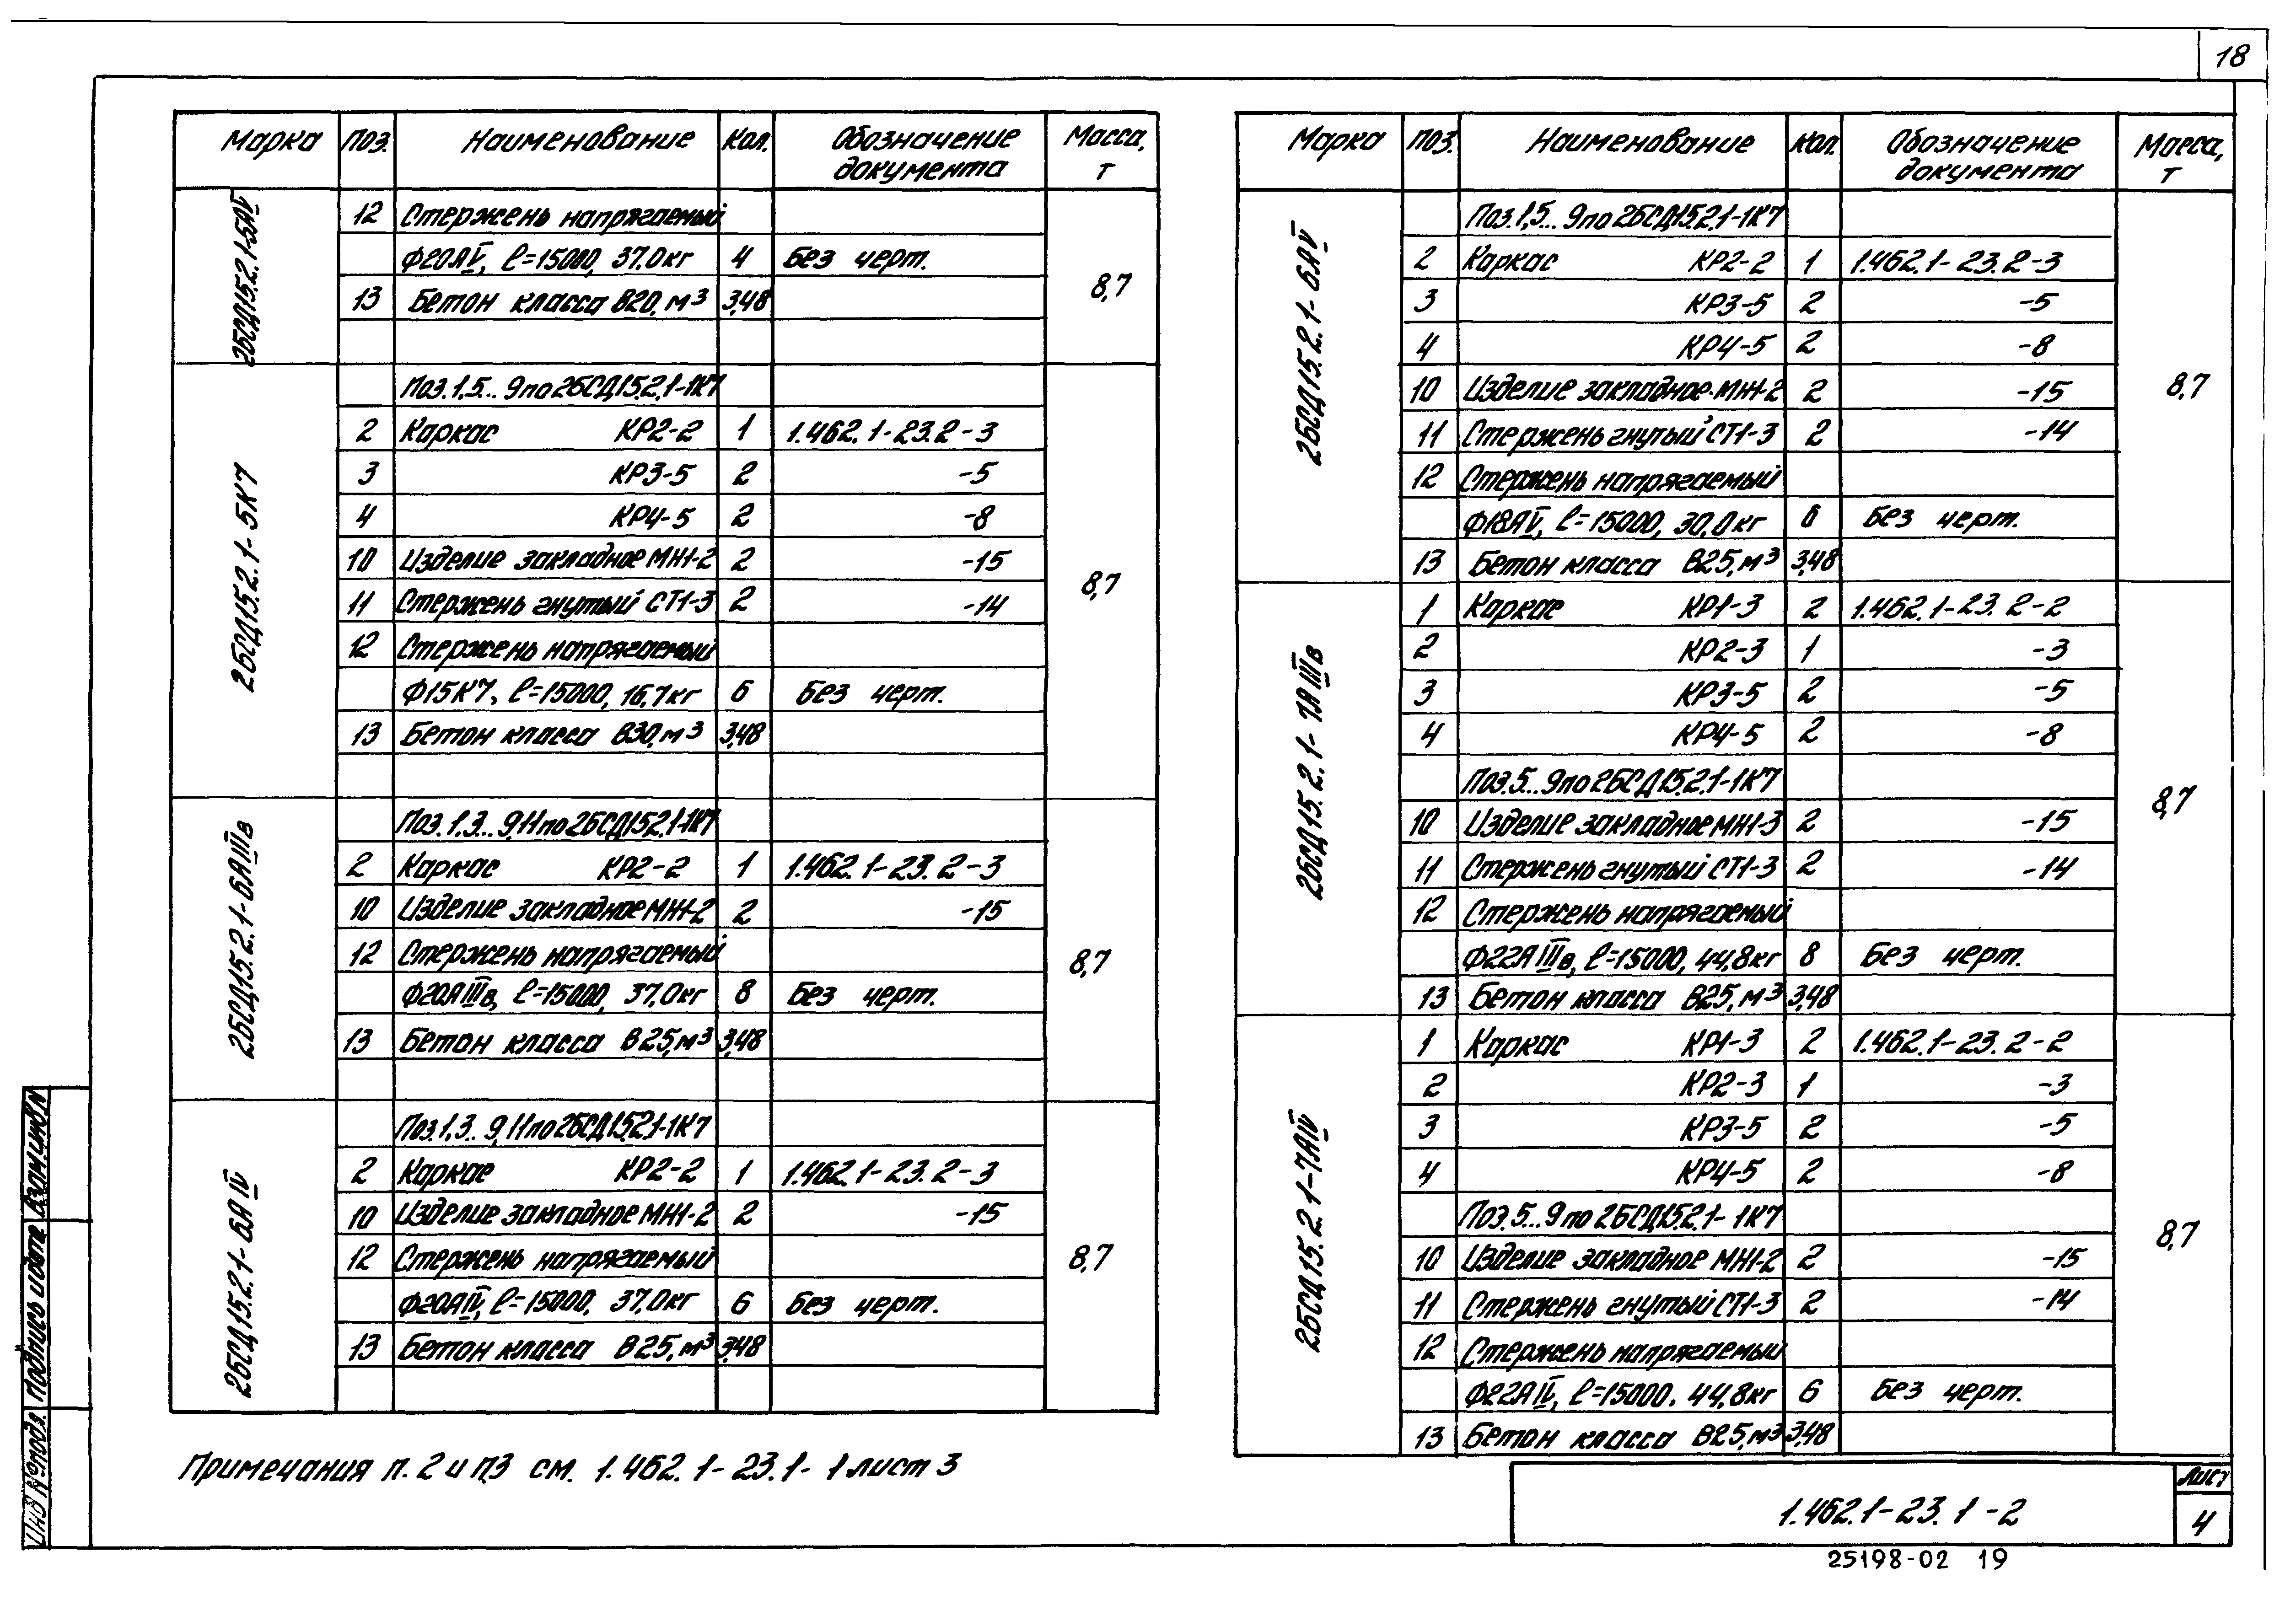 18
Марка Поз. Наименование Кол. Обозначение документа Масса, т
2БСД15.2.1-5АV
12 Стержень напрягаемый
Ф20АV, ℓ=15000, 37.0кг 4 Без черт.
13 Бетон класса В20, м³ 3,48
8,7
2БСД15.2.1-5К7
Поз.1,5... 9 по 2БСД15.2.1-1К7
2 Каркас КР2-2 1 1.462.1-23.2-3
3 КР3-5 2 -5
4 КР4-5 2 -8
10 Изделие закладное МН1-2 2 -15
11 Стержень гнутый СТ1-3 2 -14
12 Стержень напрягаемый
Ф15К7, ℓ=15000, 16,7кг 6 Без черт.
13 Бетон класса В30, м³ 3,48
8,7
2БСД15.2.1-6АIIIв
Поз.1,3... 9,11 по 2БСД15.2.1-1К7
2 Каркас КР2-2 1 1.462.1-23.2-3
10 Изделие закладное МН1-2 2 -15
12 Стержень напрягаемый
Ф20АIIIв, ℓ=15000, 37,0кг 8 Без черт.
13 Бетон класса В25, м³ 3,48
8,7
2БСД15.2.1-6АIV
Поз.1,3... 9,11 по 2БСД15.2.1-1К7
2 Каркас КР2-2 1 1.462.1-23.2-3
10 Изделие закладное МН1-2 2 -15
12 Стержень напрягаемый
Ф20АIV, ℓ=15000, 37,0кг 6 Без черт.
13 Бетон класса В25, м³ 3,48
8,7
Примечания п. 2 и п3 см. 1.462.1-23.1-1 лист 3
Марка Поз. Наименование Кол. Обозначение документа Масса, т
2БСД15.2.1-6АV
Поз.1,5... 9 по 2БСД15.2.1-1К7
2 Каркас КР2-2 1 1.462.1-23.2-3
3 КР3-5 2 -5
4 КР4-5 2 -8
10 Изделие закладное МН1-2 2 -15
11 Стержень гнутый СТ1-3 2 -14
12 Стержень напрягаемый
Ф18АV, ℓ=15000, 30,0кг 6 Без черт.
13 Бетон класса В25, м³ 3,48
8,7
2БСД15.2.1-7АIIIв
1 Каркас КР1-3 2 1.462.1-23.2-2
2 КР2-3 1 -3
3 КР3-5 2 -5
4 КР4-5 2 -8
Поз.5... 9 по 2БСД15.2.1-1К7
10 Изделие закладное МН1-3 2 -15
11 Стержень гнутый СТ1-3 2 -14
12 Стержень напрягаемый
Ф22АIIIв, ℓ=15000, 44,8кг 8 Без черт.
13 Бетон класса В25, м³ 3,48
8,7
2БСД15.2.1-7АIV
1 Каркас КР1-3 2 1.462.1-23.2-2
2 КР2-3 1 -3
3 КР3-5 2 -5
4 КР4-5 2 -8
Поз.5... 9 по 2БСД15.2.1-1К7
10 Изделие закладное МН1-2 2 -15
11 Стержень гнутый СТ1-3 2 -14
12 Стержень напрягаемый
Ф22АIV, ℓ=15000. 44,8кг 6 Без черт.
13 Бетон класса В25, м³ 3,48
8,7
1.462.1-23.1-2
Лист
4
25198-02 19
Инв №подл. Подпись и дата Взам.инв№